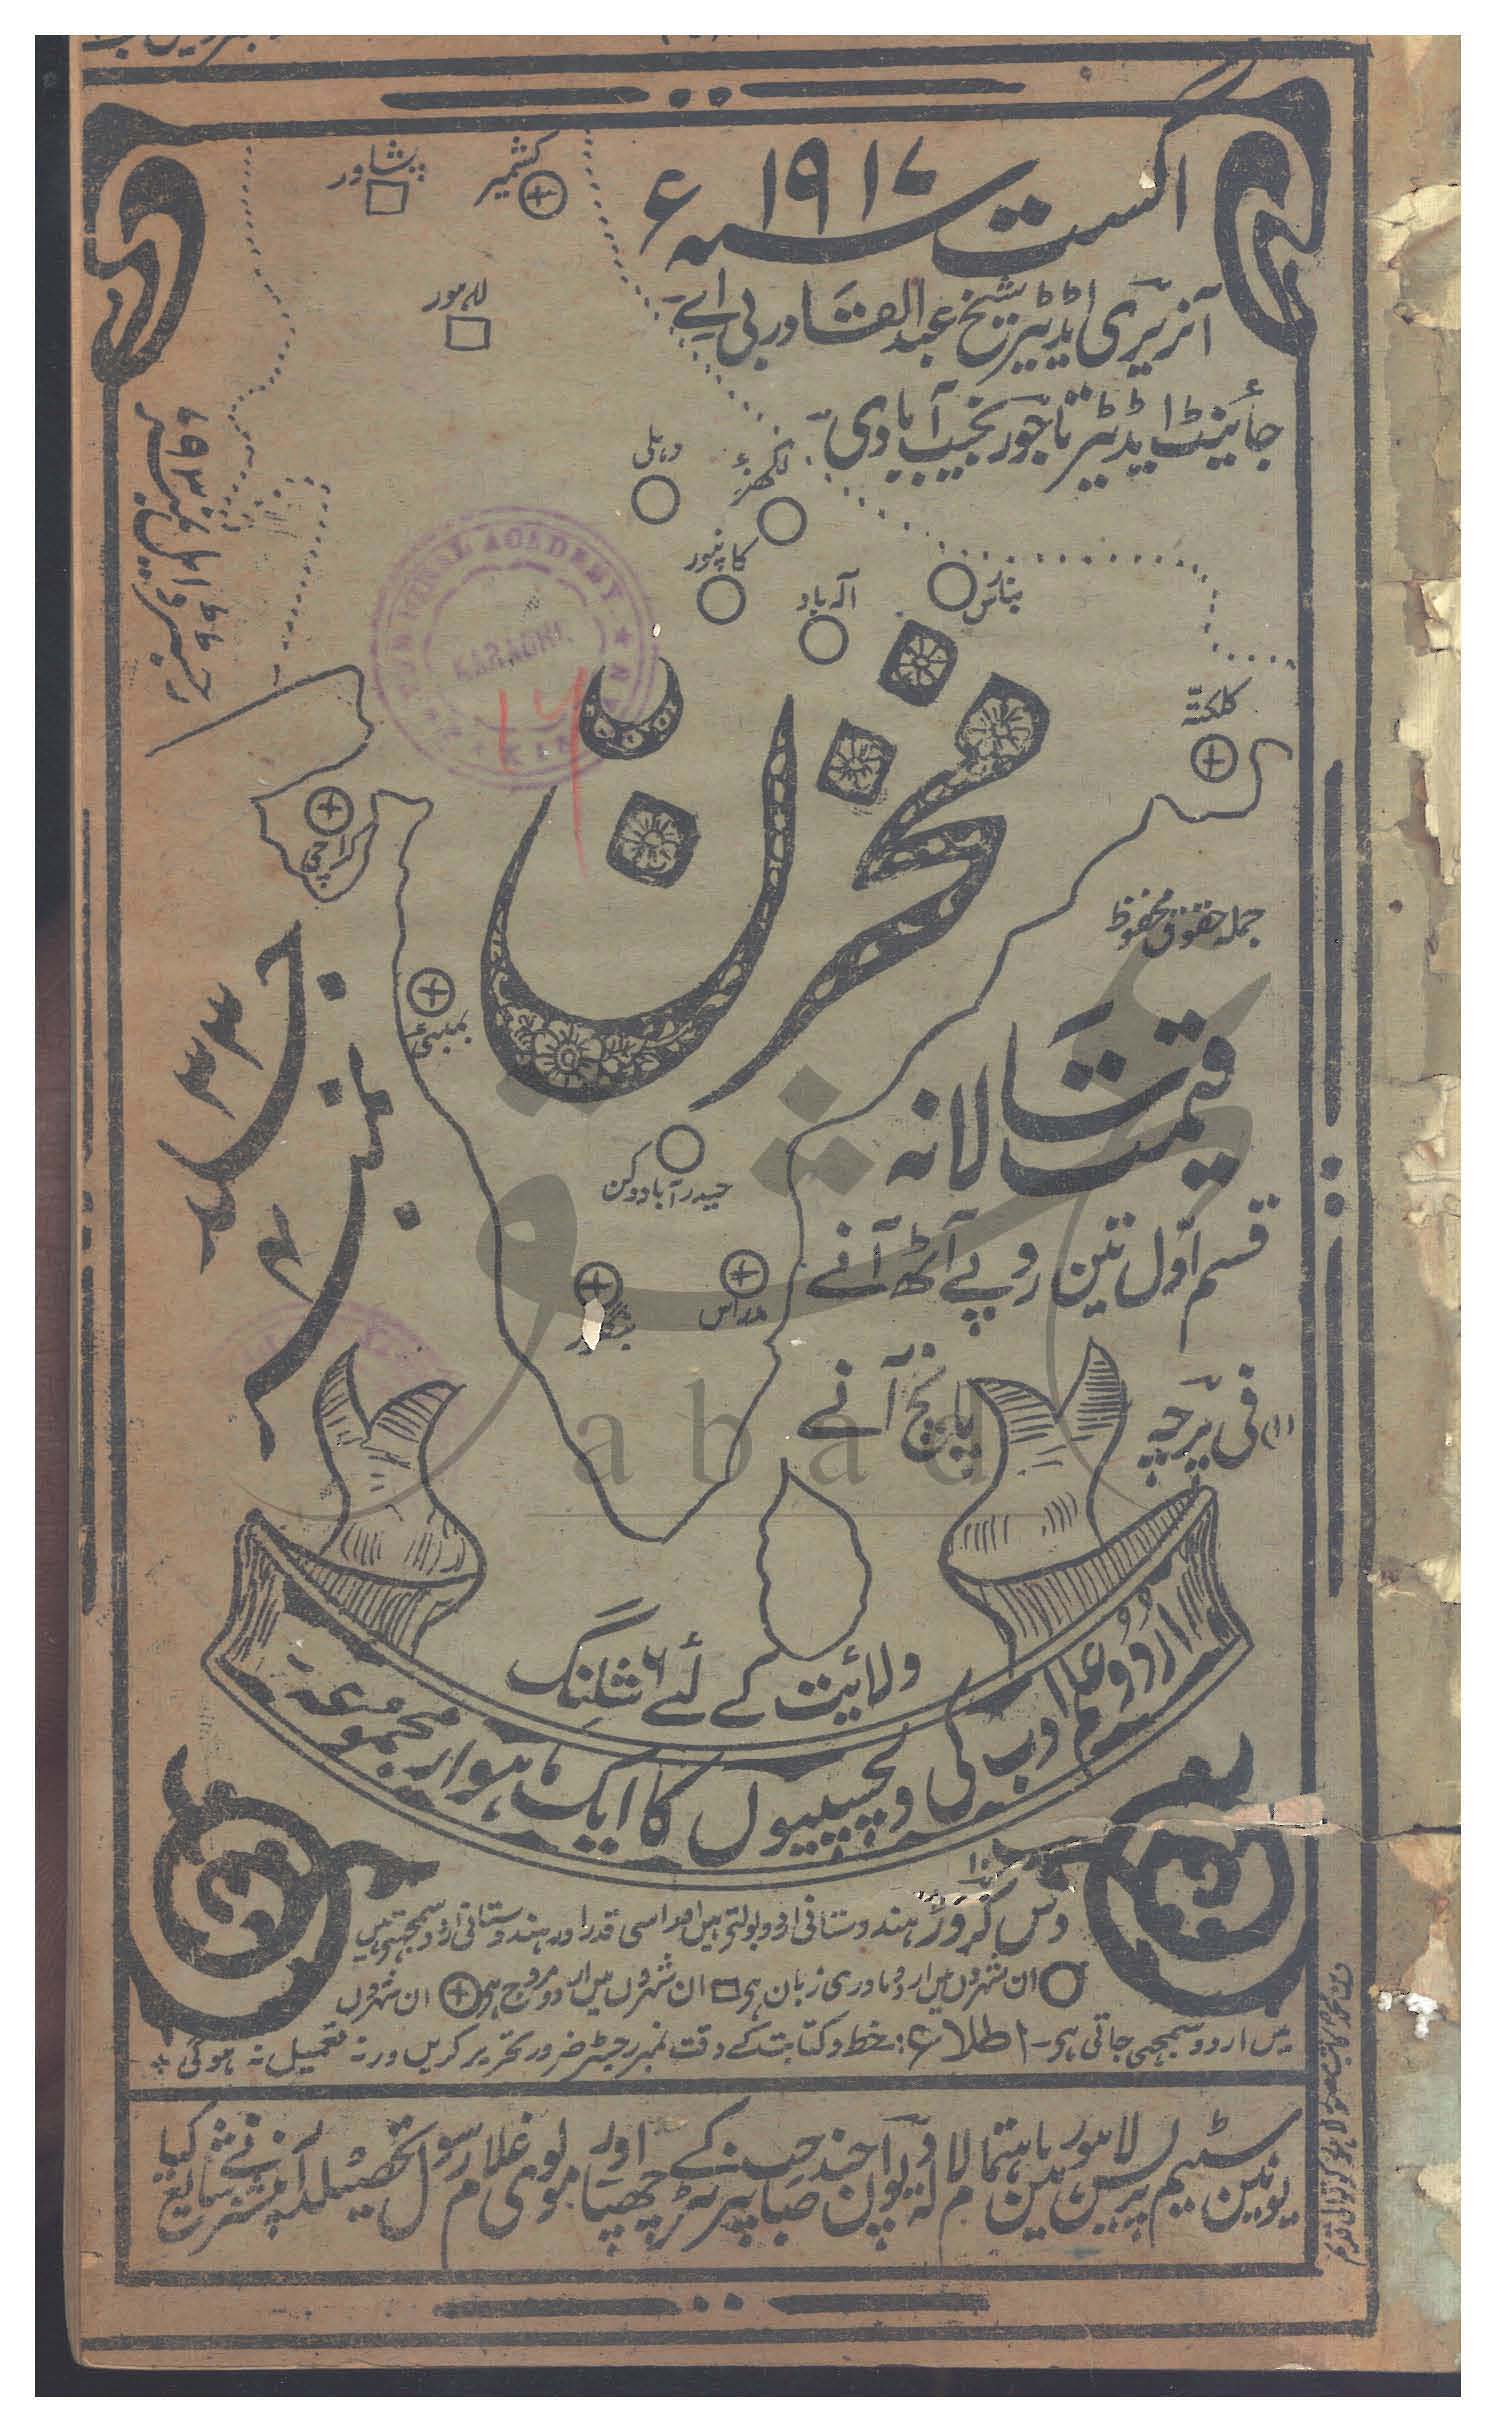 اگست ۱۹۱۷ء
آنریری اڈیٹر شیخ عبدالقادر بی اے
جائینٹ ایڈیٹر تاجور نجیب آبادی
پشاور
کشمیر
لاہور
دہلی
لکھنؤ
کانپور
الہ باد
بنارس
کلکتہ
کراچی
بمبئی
KARACHI
مخزن
جملہ حقوق محفوظ
جلد ۳۳
نمبر
قیمت سالانہ
حیدر آباد دکن
مدراس
قسم اول تین روپے آٹھ آنے
فی پرچہ پانچ آنے
abad
ولائیت کے لئے ۶ شلنگ
اردو علم ادب کی دلچسپیوں کا ایک ماہوار مجموعہ
دس کروڑ ہندوستانی اردو بولتے ہیں اور اسی قدر اور ہندوستانی اردو سمجھتے ہیں
ان شہروں میں اردو مادری زبان ہی ان شہروں میں اردو مروج ہی ان شہروں
میں اردو سمجھی جاتی ہی۔ اطلاع: خط و کتابت کے وقت نمبر رجسٹر ضرور تحریر کریں ورنہ تعمیل نہ ہوگی
یونین سٹیم پریس لاہور میں باہتمام لالہ دیوان چند صاحب پرنٹر کے چھپا اور مولوی غلام رسول آنریری نے شائع کیا